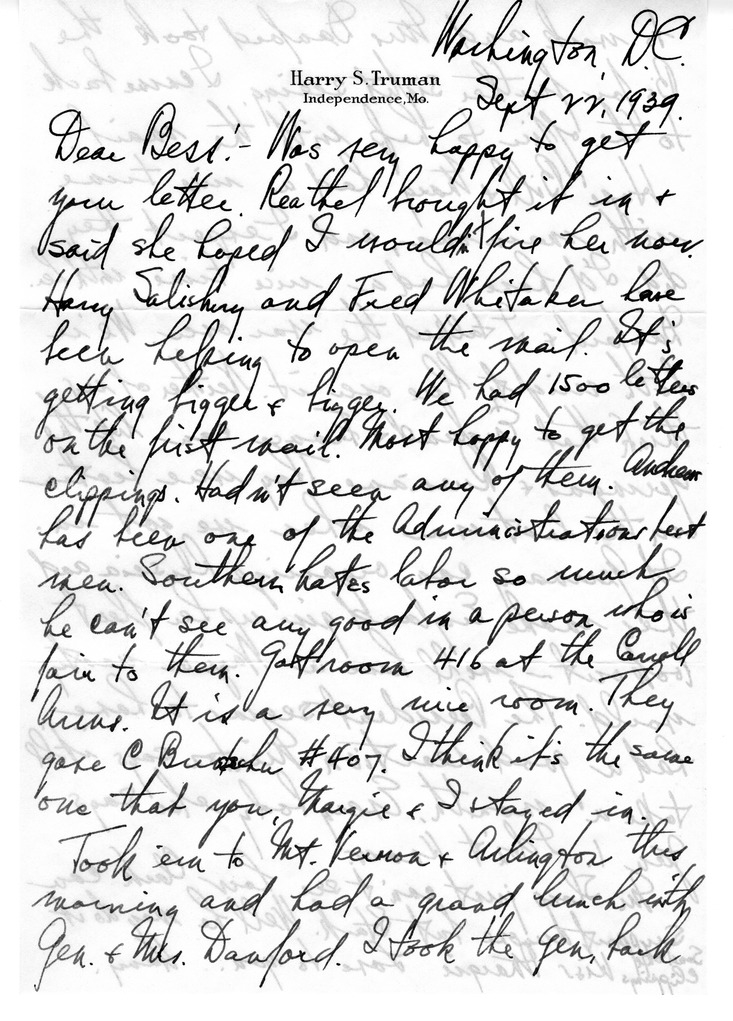 Washington, D.C.
Harry S. Truman
Independence, Mo.
Sept 22, 1939.
Dear Bess:- Was very happy to get
your letter. Reathel brought it in &
said she hoped I wouldn't fire her now.
Harry Salisbury and Fred Whitaker have
been helping to open the mail. It's
getting bigger & bigger. We had 1500 letters
on the first mail. Most happy to get the
clippings. Hadn't seen any of them. Andrews
has been one of the Administrations best
men. Southern hates labor so much
he can't see any good in a person who is
fair to them. Got room 416 at the Carroll
Arms. It is a very nice room. They
gave C #407. I think it's the same
one that you, Margie & I stayed in.
Took 'em to Mt. Vernon & Arlington this
morning and had a grand lunch with
Gen. & Mrs. Danford. I took the Gen. back